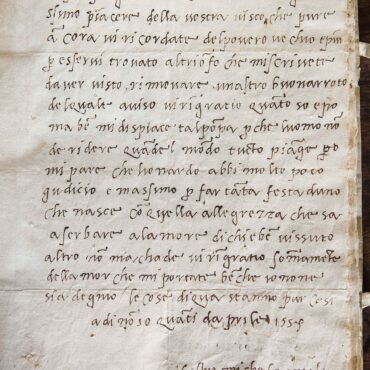 simo piacere della vostra visto che pure
a cora vi ricordate del povero vechio e piu
p esservi trovato al triōfo che mi scrivete
daver visto rinnovare unaltro buonarroto
delquale aviso viri gratio quāto so e po
ma bē mi dispiace tal pōpa p che luomo nō
de ridere quāde l mōdo tucto piāge po
mi pare che lionardo abbi molto poco
giudicio e massimo p far tāta festa duno
che nasce cō quella allegrezza che sa
a serbare a la morte di chi e bē vissuto
altro nō machade vi rīgratio somāmēte
dellamor che mi portate bēche io none
sia degnio le cose di qua stanno pur cosi
a di nō so quāti daprile 1554